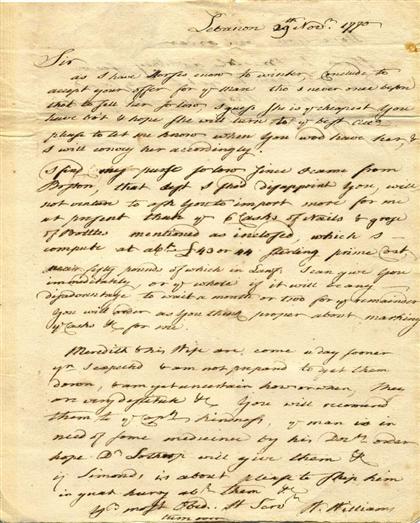 Lebanon 29th Novr. 1770
Sir
as I have Horses enow to winter, conclude to
accept your offer for ye Mare tho I never once before
that to sell her so low, I guess she is ye cheapest you
have bo't & hope she will turn to ye best acct
please to let me know when you wou'd have her, &
I will convey her accordingly
I find my purse so low since I came from
Boston, that lest I shod disappoint you, will
not venture to ask you to import more for me
at present than ye 6 Casks of Nails & groce
of Bottles mentioned as inclosed, which I
compute at abt. £43 or 44 sterling prime Cost
near fifty pound of which in Lawf. I can give you
immediately, or ye whole if it will be any
disadvantage to wait a month or two for ye remainder
You will order as you think proper about marking
ye casks &c for me
Meredith & his Wife are come a day sooner
yn I expected & am not prepar'd to get them
down, & am yet uncertain how or when, They
are very destitute & You will recommend
them to ye Captn kindness, ye man is in
need of some medicine by his Dr's order
hope Dr. will give them &
if Simonds is about please to ship him
in great hurry abt. them &c
Yr most Obed. H Servt
W. Williams